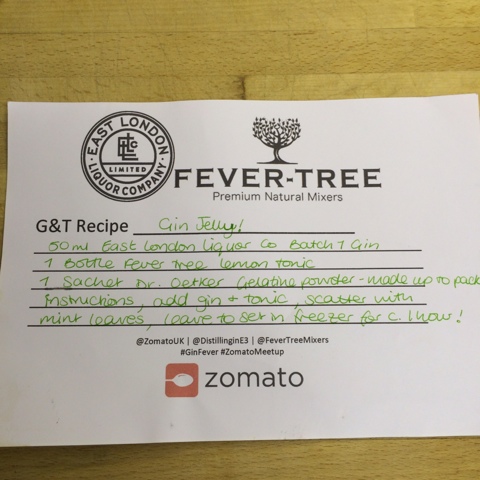 EAST LONDON
LIQUOR COMPANY
LIMITED
FEVER-TREE
Premium Natural Mixers
G&T Recipe Gin Jelly!
50ml East London Liquor Co Batch 1 Gin
1 Bottle Fever Tree Lemon Tonic
1 Sachet Dr. Oetker Gelatine powder - made up to pack
instructions, add gin + tonic, scatter with
mint leaves, leave to set in freezer for c. 1 hour!
@ZomatoUK | @DistillinginE3 | @FeverTreeMixers
#GinFever #ZomatoMeetup
zomato